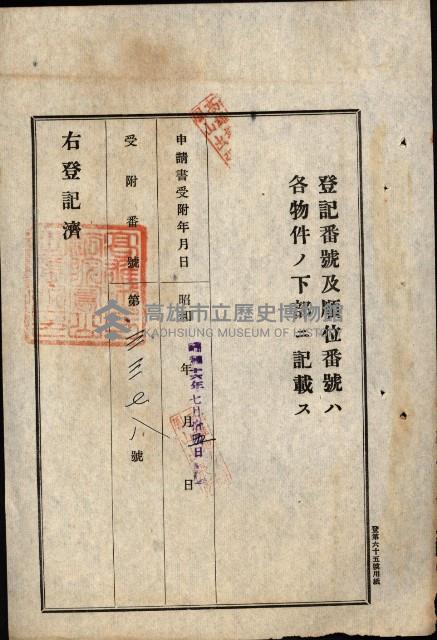 登記番號及順位番號ハ
各物件ノ下部ニ記載ス
申請書受附年月日
昭和 年 月 日
昭和十六年七月
受附番號
第三三七八號
右登記濟
登第六十五號用紙
高雄市立歷史博物館
KAOHSIUNG MUSEUM OF HISTORY